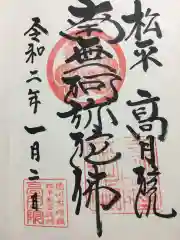 松平
高月院
南無阿弥陀佛
令和二年一月二日